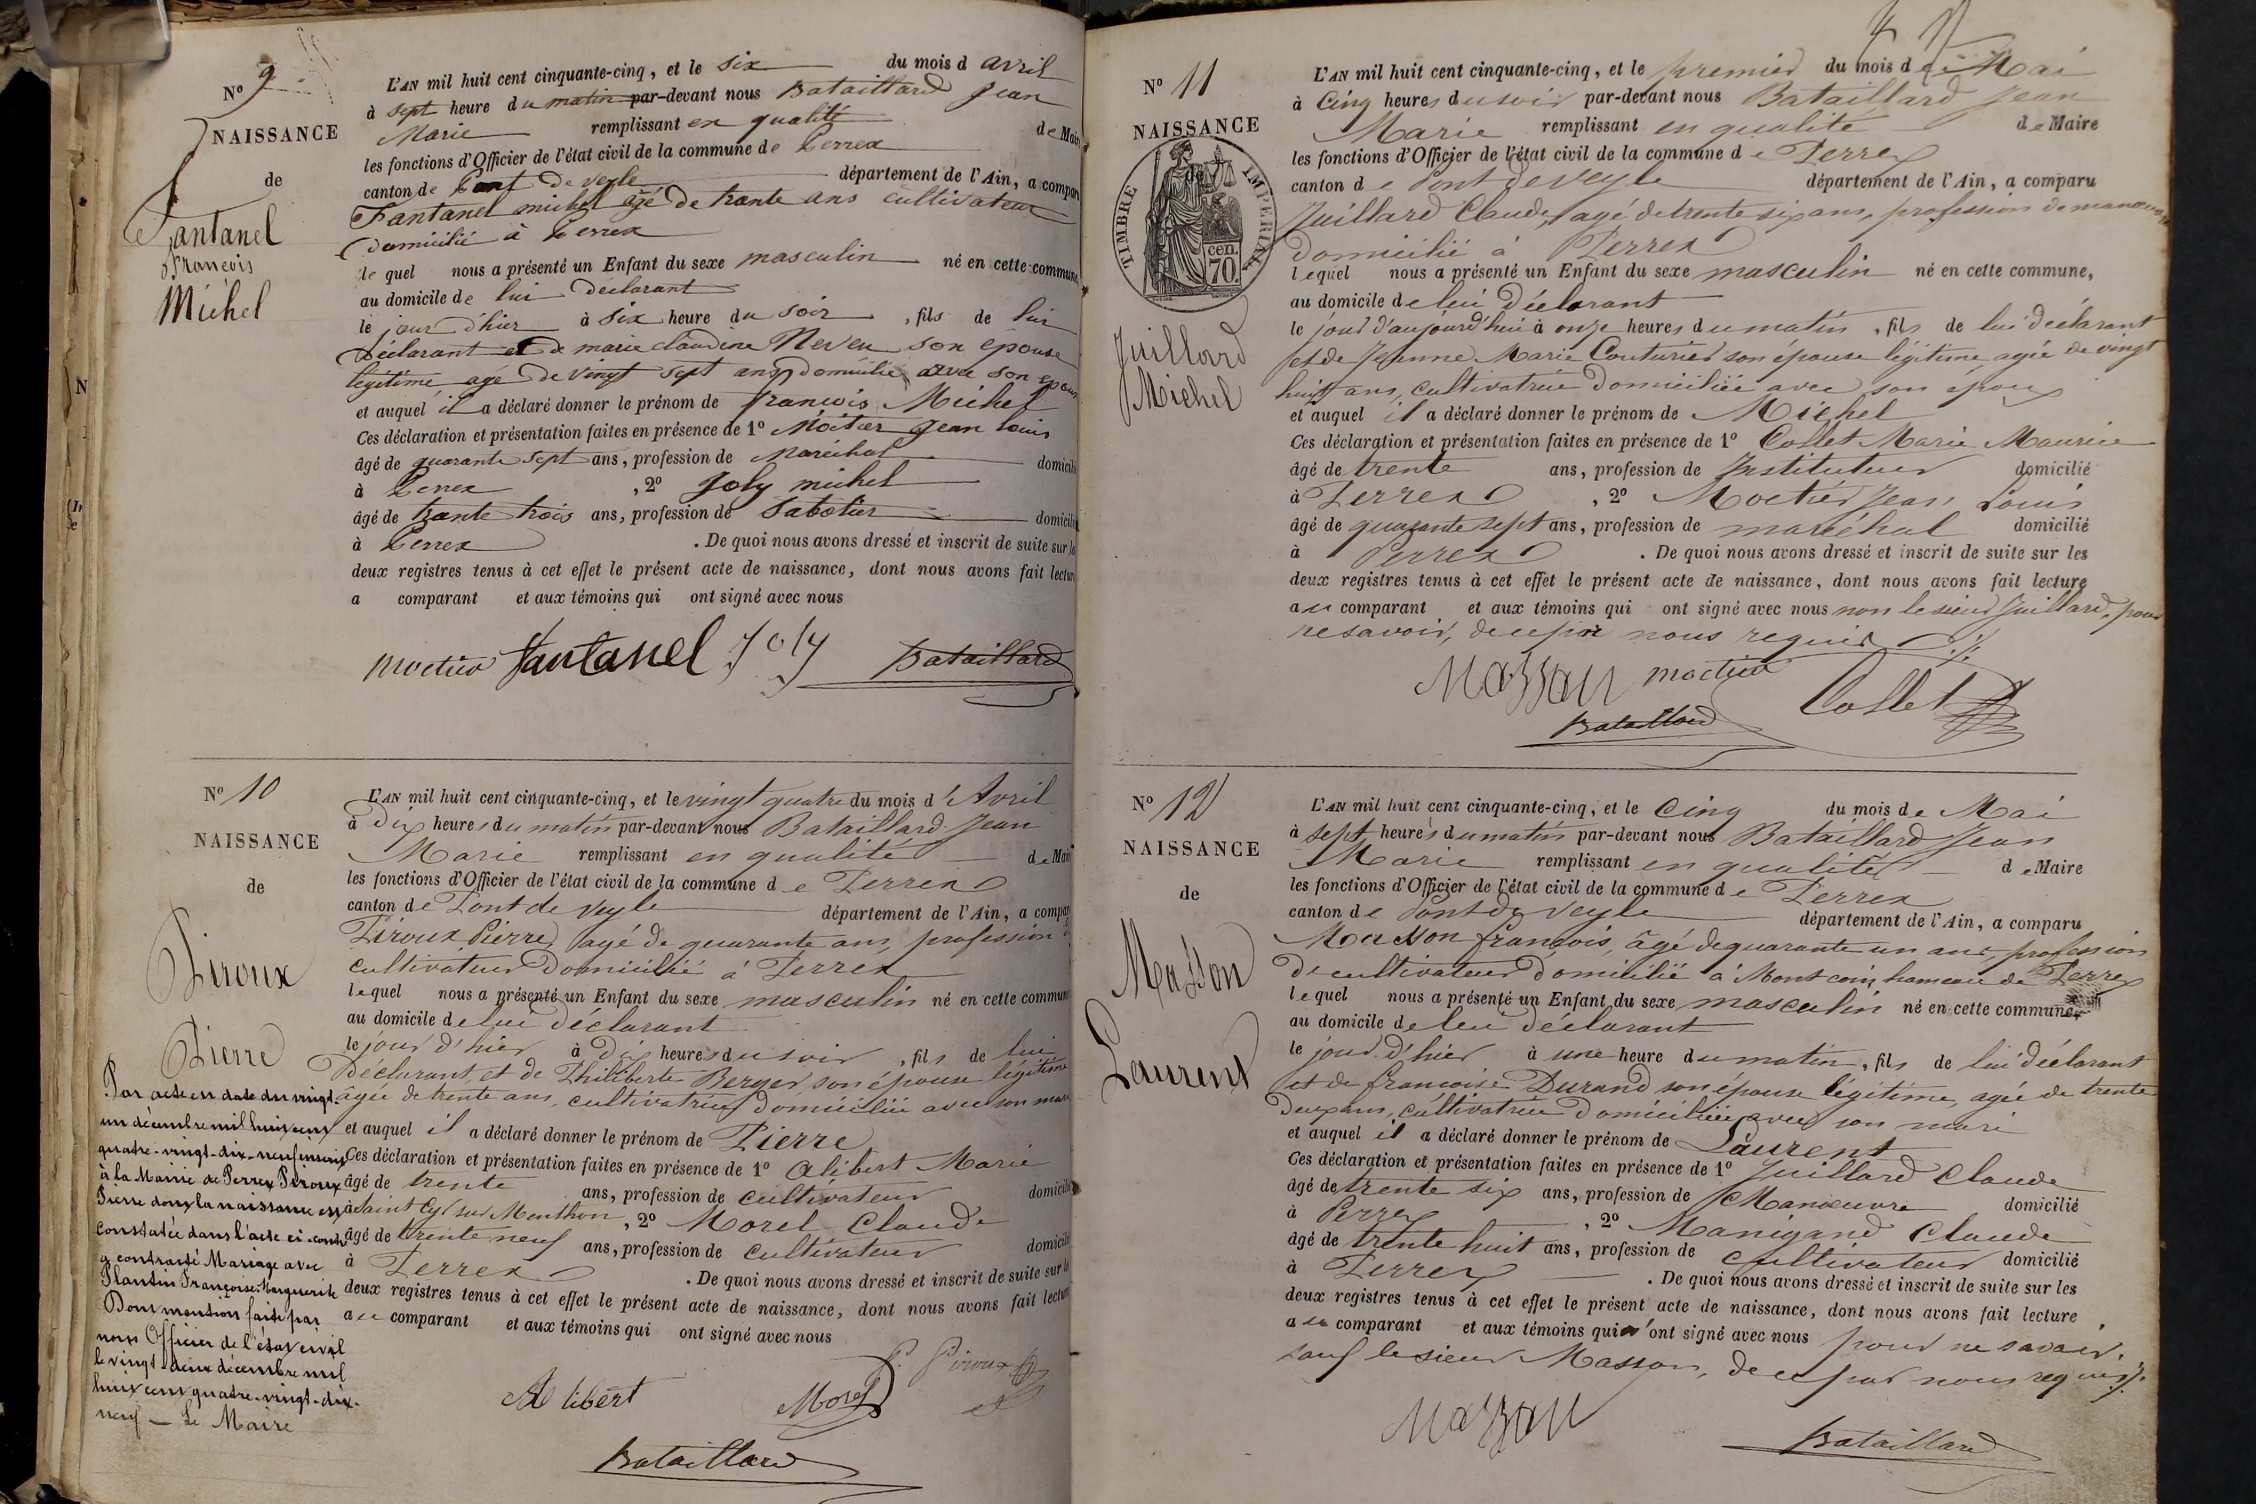 N° 9
NAISSANCE
de
Fantanel
François
Michel
L'AN mil huit cent cinquante-cinq, et le six du mois d avril
à sept heure du matin par-devant nous Bataillard Jean
Marie remplissant en qualité de Mair
les fonctions d'Officier de l'état civil de la commune de Perrex
canton de Pont de veyle département de l'Ain, a compar
Fantanel michel agé de trante ans cultivateur
domicilié à Perrex
le quel nous a présenté un Enfant du sexe masculin né en cette commune
au domicile de lui declarant
le jour d'hier à six heure du soir, fils de lui
déclarant et de marie claudine Neveu son épouse
légitime agé de vingt sept ans domicilié avec son epoux
et auquel il a déclaré donner le prénom de françois Michel
Ces déclaration et présentation faites en présence de 1° Moitier Jean louis
âgé de quarante sept ans, profession de Maréchal domicilié
à Perrex, 2° Joly michel
âgé de trante trois ans, profession de Sabotier domicilié
à Perrex. De quoi nous avons dressé et inscrit de suite sur le
deux registres tenus à cet effet le présent acte de naissance, dont nous avons fait lecture
a comparant et aux témoins qui ont signé avec nous
moctier fantanel joly Bataillard
N° 10
NAISSANCE
de
Piroux
Pierre
Par acte en date du vingt-
un décembre mil huit cent
quatre-vingt-dix-neuf inscrit
à la Mairie de Perrex Piroux
Pierre dont la naissance est
constatée dans l'acte ci-contre
a contracté Mariage avec
Plantin Françoise Marguerite
Dont mention faite par
nous Officier de l'état civil
le vingt-deux décembre mil
huit cent quatre-vingt-dix-
neuf — Le Maire
L'AN mil huit cent cinquante-cinq, et le vingt quatre du mois d'Avril
à Dix heures du matin par-devant nous Bataillard Jean
Marie remplissant en qualité de Mair
les fonctions d'Officier de l'état civil de la commune de Perrex
canton de Pont de Veyle département de l'Ain, a compar
Piroux Pierre, agé de quarante ans, profession de
cultivateur Domicilié à Perrex
lequel nous a présenté un Enfant du sexe masculin né en cette commun
au domicile de lui déclarant
le jour d'hier à Dix heures du soir, fils de lui
Déclarant, et de Philiberte Berger son épouse légitime
agée de trente ans, cultivatrice domiciliée avec son mari
et auquel il a déclaré donner le prénom de Pierre
Ces déclaration et présentation faites en présence de 1° Alibert Marie
âgé de trente ans, profession de cultivateur domicilié
à Saint Cyr sur Menthon, 2° Morel Claude
âgé de trente neuf ans, profession de cultivateur domicilié
à Perrex. De quoi nous avons dressé et inscrit de suite sur le
deux registres tenus à cet effet le présent acte de naissance, dont nous avons fait lecture
au comparant et aux témoins qui ont signé avec nous
P. Piroux
Alibert Morel
Bataillard
N° 11
NAISSANCE
TIMBRE IMPERIAL
cen.
70.
Juillard
Michel
L'AN mil huit cent cinquante-cinq, et le premier du mois de Mai
à Cinq heures du soir par-devant nous Bataillard Jean
Marie remplissant en qualité de Maire
les fonctions d'Officier de l'état civil de la commune de Perrex
canton de Pont de Veyle département de l'Ain, a comparu
Juillard Claude, agé de trente six ans, profession de manœuvre
Domicilié à Perrex
lequel nous a présenté un Enfant du sexe masculin né en cette commune,
au domicile de lui Déclarant
le jour d'aujourd'hui à onze heures du matin, fils de lui déclarant
et de Jeanne Marie Couturier son épouse légitime, agée de vingt
huit ans, cultivatrice Domiciliée avec son époux
et auquel il a déclaré donner le prénom de Michel
Ces déclaration et présentation faites en présence de 1° Collet Marie Maurice
âgé de trente ans, profession de Instituteur domicilié
à Perrex, 2° Moctier Jean Louis
âgé de quarante sept ans, profession de maréchal domicilié
à Perrex. De quoi nous avons dressé et inscrit de suite sur les
deux registres tenus à cet effet le présent acte de naissance, dont nous avons fait lecture
au comparant et aux témoins qui ont signé avec nous non le sieur Juillard, pour
ne savoir, de ce par nous requis
Masson moctier Collet
Bataillard
N° 12
NAISSANCE
de
Masson
Laurent
L'AN mil huit cent cinquante-cinq, et le Cinq du mois de Mai
à sept heures du matin par-devant nous Bataillard Jean
Marie remplissant en qualité de Maire
les fonctions d'Officier de l'état civil de la commune de Perrex
canton de Pont de Veyle département de l'Ain, a comparu
Masson françois, âgé de quarante un ans, profession
De cultivateur domicilié à Montcoin hameau de Perrex
lequel nous a présenté un Enfant du sexe masculin né en cette commune,
au domicile de lui déclarant
le jour d'hier à une heure du matin, fils de lui déclarant
et de françoise Durand son épouse légitime, agée de trente
Deux ans, cultivatrice Domiciliée avec son mari
et auquel il a déclaré donner le prénom de Laurent
Ces déclaration et présentation faites en présence de 1° Juillard Claude
âgé de trente six ans, profession de Manœuvre domicilié
à Perrex, 2° Manigand Claude
âgé de trente huit ans, profession de cultivateur domicilié
à Perrex. De quoi nous avons dressé et inscrit de suite sur les
deux registres tenus à cet effet le présent acte de naissance, dont nous avons fait lecture
au comparant et aux témoins qui n'ont signé avec nous pour ne savoir,
sauf le sieur Masson, de ce par nous requis
Masson
Bataillard